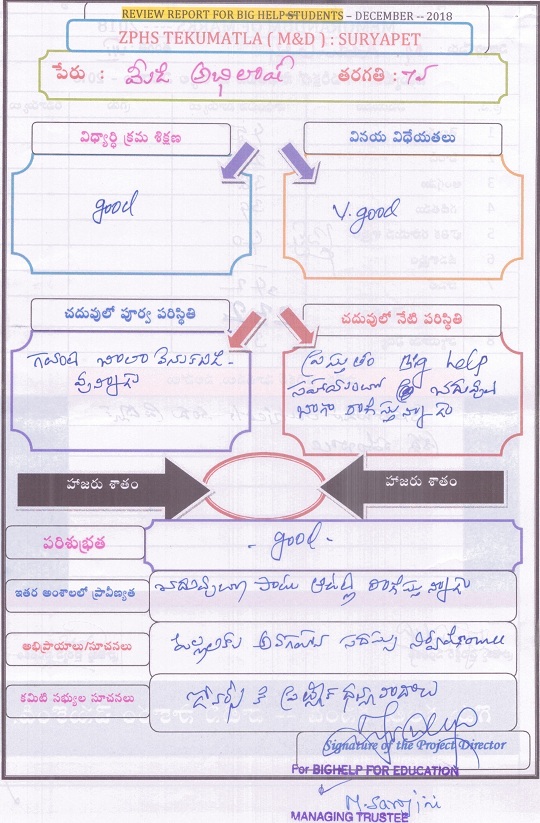 REVIEW REPORT FOR BIG HELP STUDENTS – DECEMBER -- 2018
ZPHS TEKUMATLA ( M&D ) : SURYAPET
పేరు : మేడి అభిలాష్ తరగతి : 7వ
విద్యార్థి క్రమ శిక్షణ
good
వినయ విధేయతలు
V. good
చదువులో పూర్వ పరిస్థితి
చాలా వెనుకబడి -
వున్నాడు
చదువులో నేటి పరిస్థితి
ప్రస్తుతం Big help
సహాయంతో చదువులో
బాగా రాణిస్తున్నాడు
హాజరు శాతం
హాజరు శాతం
పరిశుభ్రత
- good -
ఇతర అంశాలలో ప్రావీణ్యత
చదువుతో పాటు ఆటల్లో రాణిస్తున్నాడు
అభిప్రాయాలు/సూచనలు
పిల్లలకు అవగాహన సదస్సు
కమిటి సభ్యుల సూచనలు
Signature of the Project Director
For BIGHELP FOR EDUCATION
MANAGING TRUSTEE